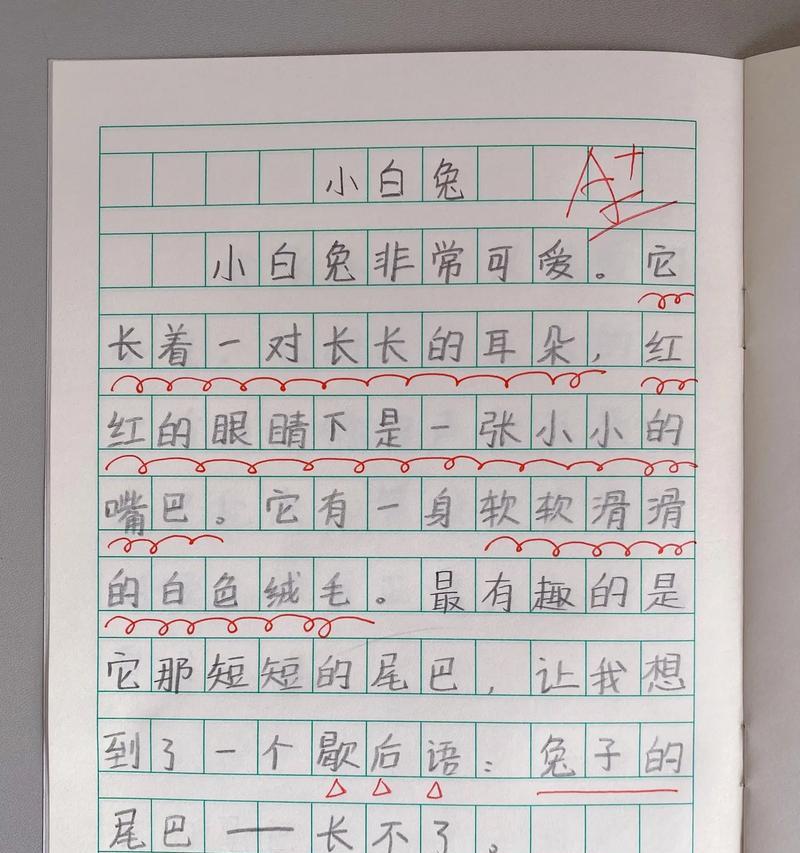 小白兔
A+
小白兔非常可爱。它
长着一对长长的耳朵，红
红的眼睛下是一张小小的
嘴巴。它有一身软软滑滑
的白色绒毛。最有趣的是
它那短短的尾巴，让我想
到了一个歇后语：兔子的
尾巴——长不了。